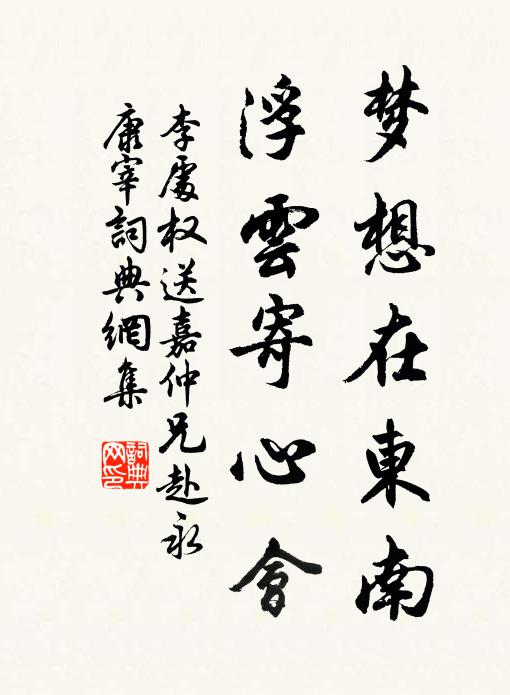 梦想在東南
浮雲寄心會
李處权送嘉仲兄赴永
康宰詞典網集
詞典網印